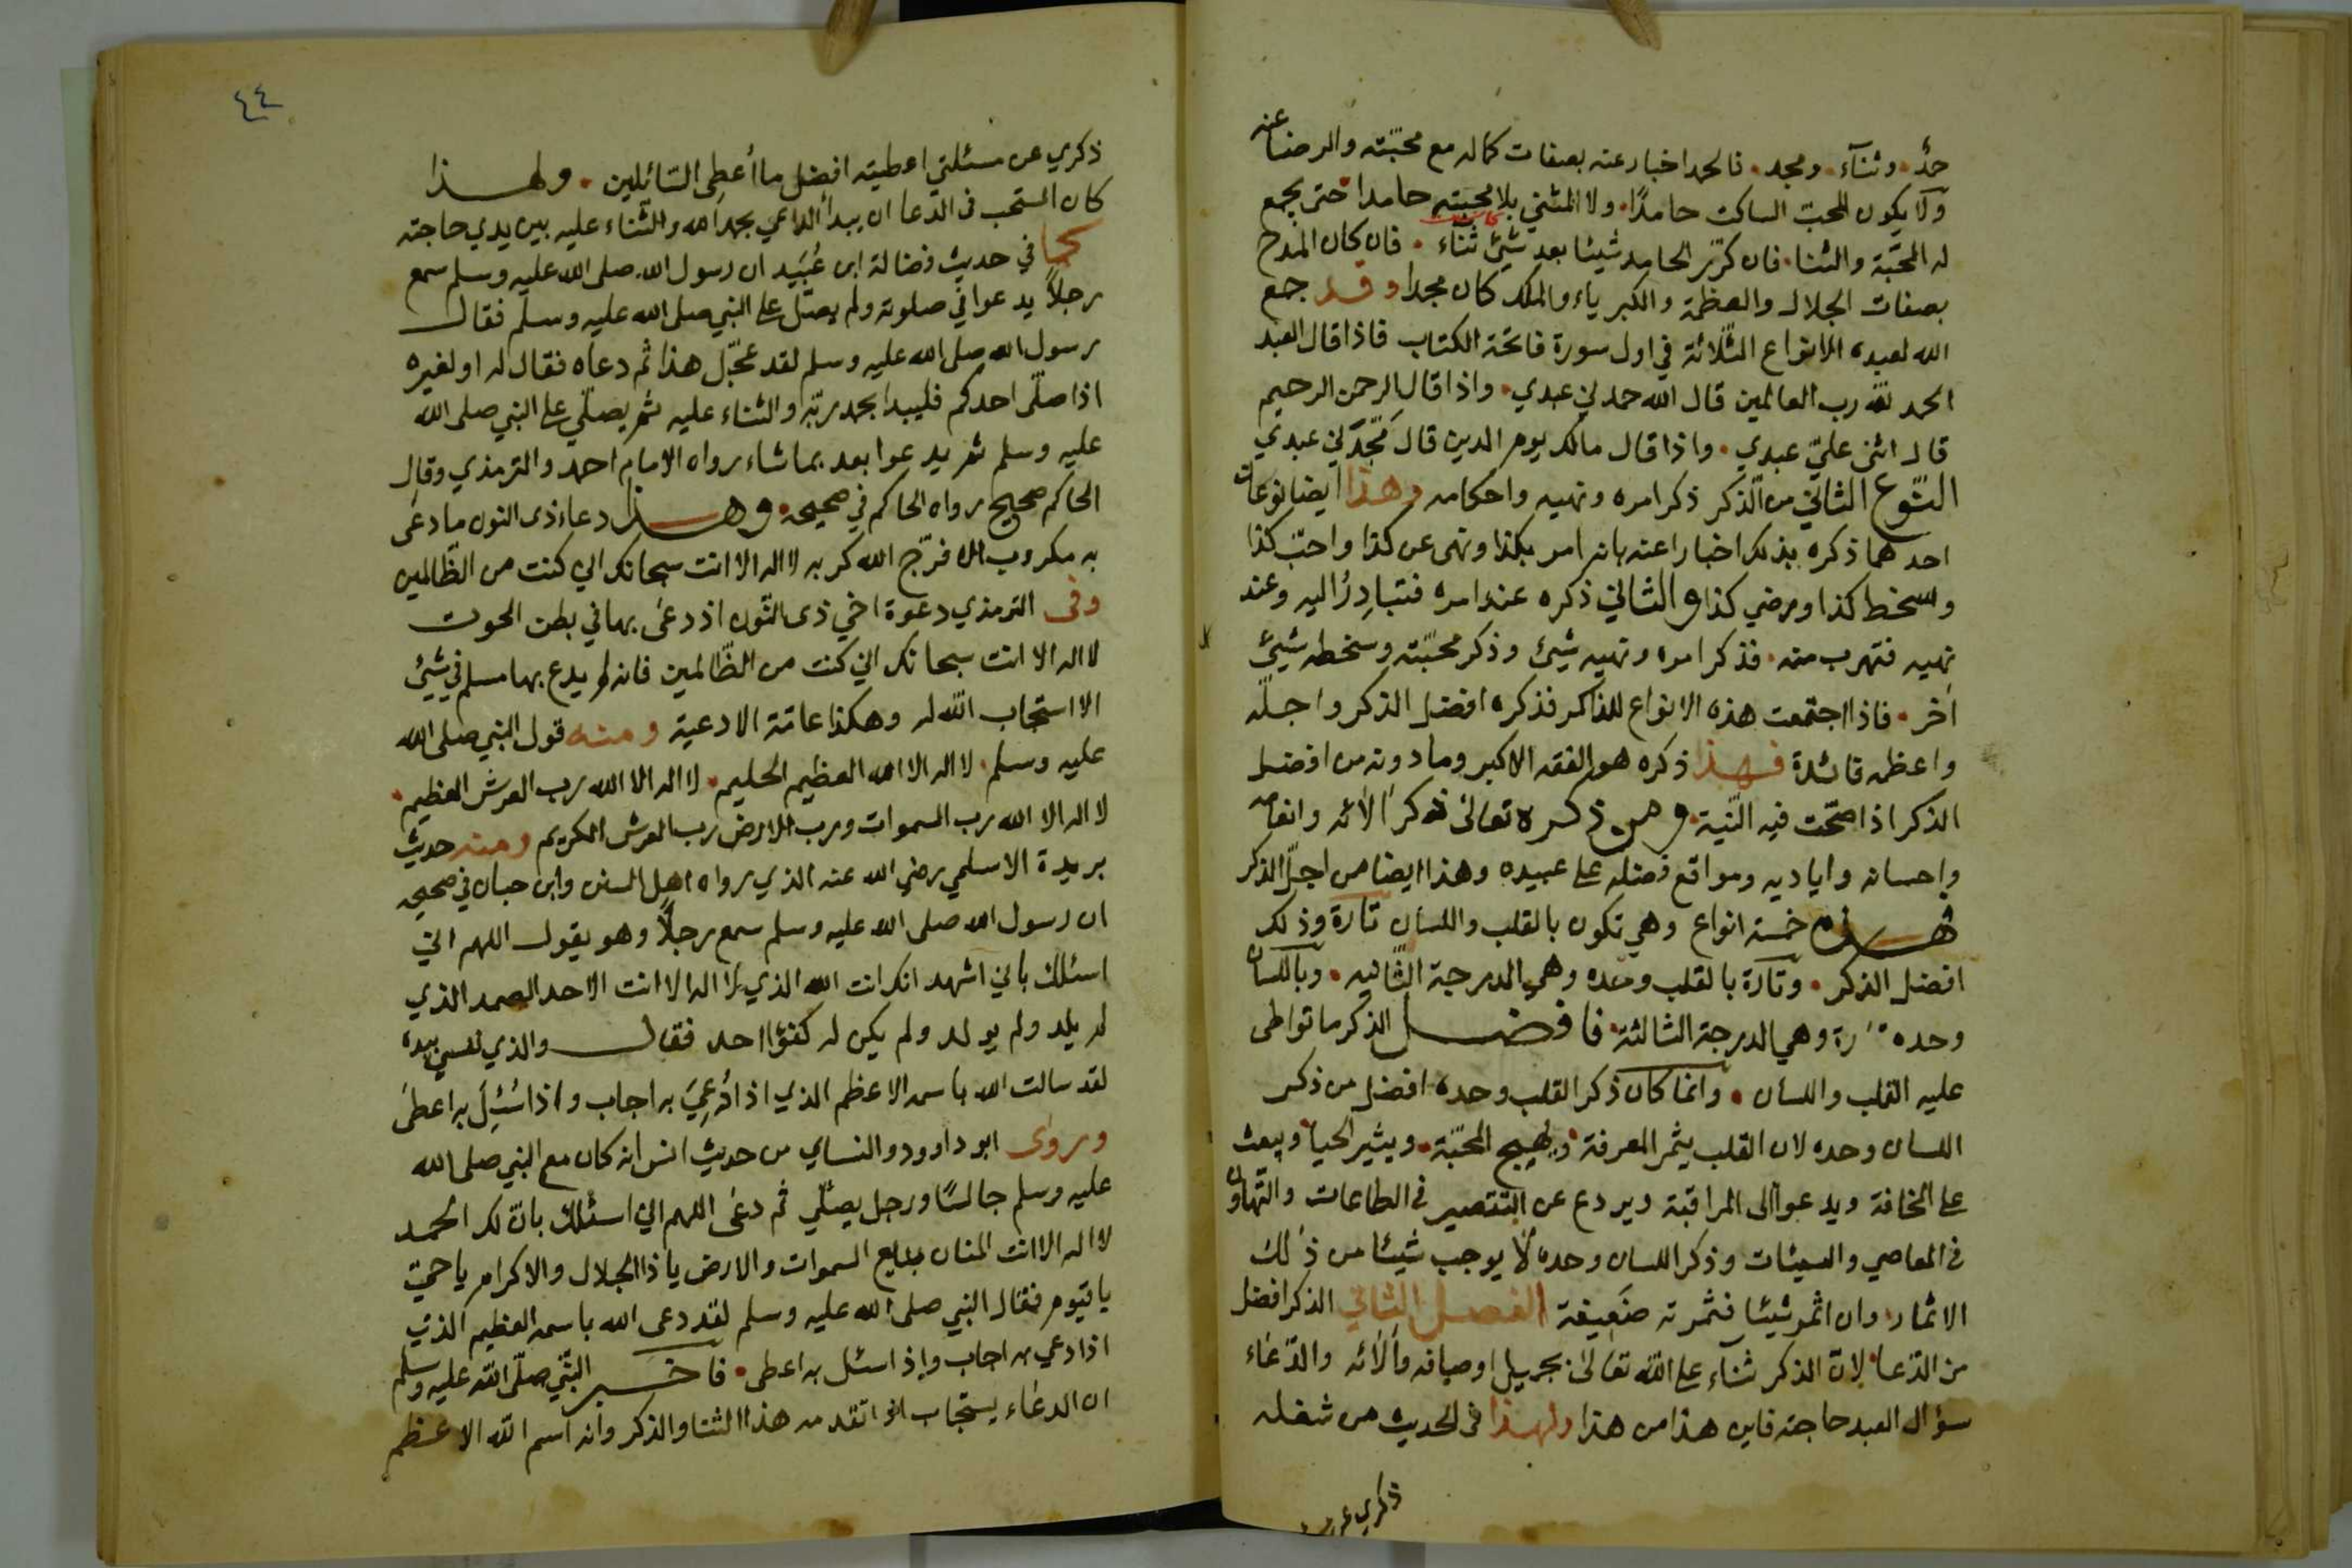 حمدٌ. وثنآء. ومجد. فالحمد اخبار عنه بصفات كماله مع محبّته والرضا عنه
ولا يكون المحبّ الساكت حامدًا. ولا المثني بلا محبته حامدا. حتى يجمع
له المحبّة والثنا. فان كرّر الحامد شيئا بعد شيئ كانت ثناء. فان كان المدح
بصفات الجلال والعظمة والكبرياء والملك كان مجدا وقد جمع
الله لعبده الانواع الثّلاثة في اول سورة فاتحة الكتاب فاذا قال العبد
الحمد للّه رب العالمين قال الله حمدني عبدي. واذا قال الرحمن الرحيم
قال اثنى عليّ عبدي. واذا قال مالك يوم الدين قال مَجَّدَني عبدي
النّوع الثاني من الّذكر ذكر امره ونهيه واحكامه وهذا ايضا نوعان
احدهما ذكره بذلك اخبارا عنه بانه امر بكذا ونهى عن كذا واحبّ كذا
وسخط كذا ورضي كذا والثاني ذكره عند امره فتبادِرُ اليه وعند
نهيه فتهرب منه. فذكر امره ونهيه شيئ وذكر محبّته وسخطه شيئ
اٰخر. فاذا اجتمعت هذه الانواع للذاكر فذكره افضل الذكر واجلّه
واعظمه فائدة فهذا ذكره هو الفقه الاكبر وما دونه من افضل
الذكر اذا صحّت فيه النّية. ومن ذكره تعالى ذكر اٰلائه وانعامه
واحسانه واياديه ومواقع فضله على عبيده وهذا ايضا من اجلّ الذكر
فهذه خمسة انواع وهي تكون بالقلب واللسان تارة وذلك
افضل الذكر. وتارة بالقلب وحده وهي الدرجة الثّانيه. وباللسان
وحده تارة وهي الدرجة الثالثة. فافضل الذكر ما تواطى
عليه القلب واللسان. وانما كان ذكر القلب وحده افضل من ذكر
اللسان وحده لان القلب يثمر المعرفة. ويهيج المحبّة. ويثير الحيا. ويبعث
على المخافة ويدعوا الى المراقبة ويردع عن التقصير في الطاعات والتهاون
في المعاصي والسيئات وذكر اللسان وحده لا يوجب شيئا من ذٰلك
الاثمار. وان اثمر شيئا فثمرته ضَعِيفة الفصل الثاني الذكر افضل
من الدّعا. لانّ الذكر ثناء على اللّه تعالىٰ بجميل اوصافه وآلائه والدّعاء
سؤال العبد حاجته فاين هذا من هذا ولهذا في الحديث من شغله
ذكري عن
٤٤
ذكري عن مسئلتي اعطيته افضل ما أعطى السّائلين. ولهذا
كان المستحب في الدّعا ان يبدأ الداعي بحمد الله والثّناء عليه بين يدي حاجته
كما في حديث فضالة ابن عُبَيد ان رسول الله صلى الله عليه وسلم سمع
رجلاً يدعوا في صلوته ولم يصل على النبي صلى الله عليه وسلم فقال
رسول الله صلى الله عليه وسلم لقد عجّل هذا ثم دعاه فقال له او لغيره
اذا صلّى احدكم فليبدا بحمد ربّه والثناء عليه ثم يصلّي على النبي صلى الله
عليه وسلم ثم يدعوا بعد بما شاء رواه الامام احمد والترمذي وقال
الحاكم صحيح رواه الحاكم في صحيحه. وهذا دعاء ذى النون ما دعى
به مكروب الا فرّج الله كربه لا اله الا انت سبحانك اني كنت من الظّالمين
وفي الترمذي دعوة اخي ذى النّون اذ دعى بها في بطن الحوت
لا اله الا انت سبحانك اني كنت من الظّالمين فانه لم يدع بها مسلم في شيئ
الا استجاب اللّه له وهكذا عامّة الادعية ومنه قول النبي صلى الله
عليه وسلم. لا اله الا الله العظيم الحليم. لا اله الا الله رب العرش العظيم.
لا اله الا الله رب السموات ورب الارض رب العرش الكريم ومنه حديث
بريدة الاسلمي رضي الله عنه الذي رواه اهل السنن وابن حبان في صحيحه
ان رسول الله صلى الله عليه وسلم سمع رجلاً وهو يقول اللهم اني
اسئلك باني اشهد انك انت الله الذي لا اله الا انت الاحد الصمد الذي
لم يلد ولم يولد ولم يكن له كفؤا احد فقال والذي نفسي بيده
لقد سالت الله باسمه الاعظم الذي اذا دُعِيَ به اجاب واذا سُئِلَ به اعطىٰ
وروى ابو داوود والنساي من حديث انس انه كان مع النبي صلى الله
عليه وسلم جالسًا ورجل يصلّي ثم دعٰى اللهم اني اسئلك بانّ لك الحمد
لا اله الا انت المنان بديع السموات والارض يا ذا الجلال والاكرام يا حيّ
يا قيوم فقال النبي صلى الله عليه وسلم لقد دعى الله باسمه العظيم الذي
اذا دعي به اجاب وإذ اسئل به اعطى. فاخبر النّبي صلّى اللّه عليه وسلم
ان الدعاء يستجاب اذا تقدمه هذا الثنا والذكر وانه اسم اللّه الاعظم